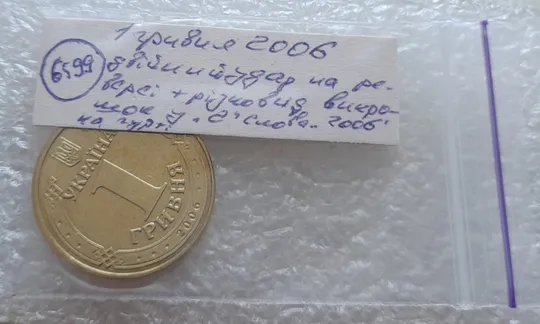 1 гривня 2006
6599
двійний удар на ре-
версі + різновид викро-
шок у "0" слова "2006"
на гурті
УКРАЇНА
1
ГРИВНЯ
2006